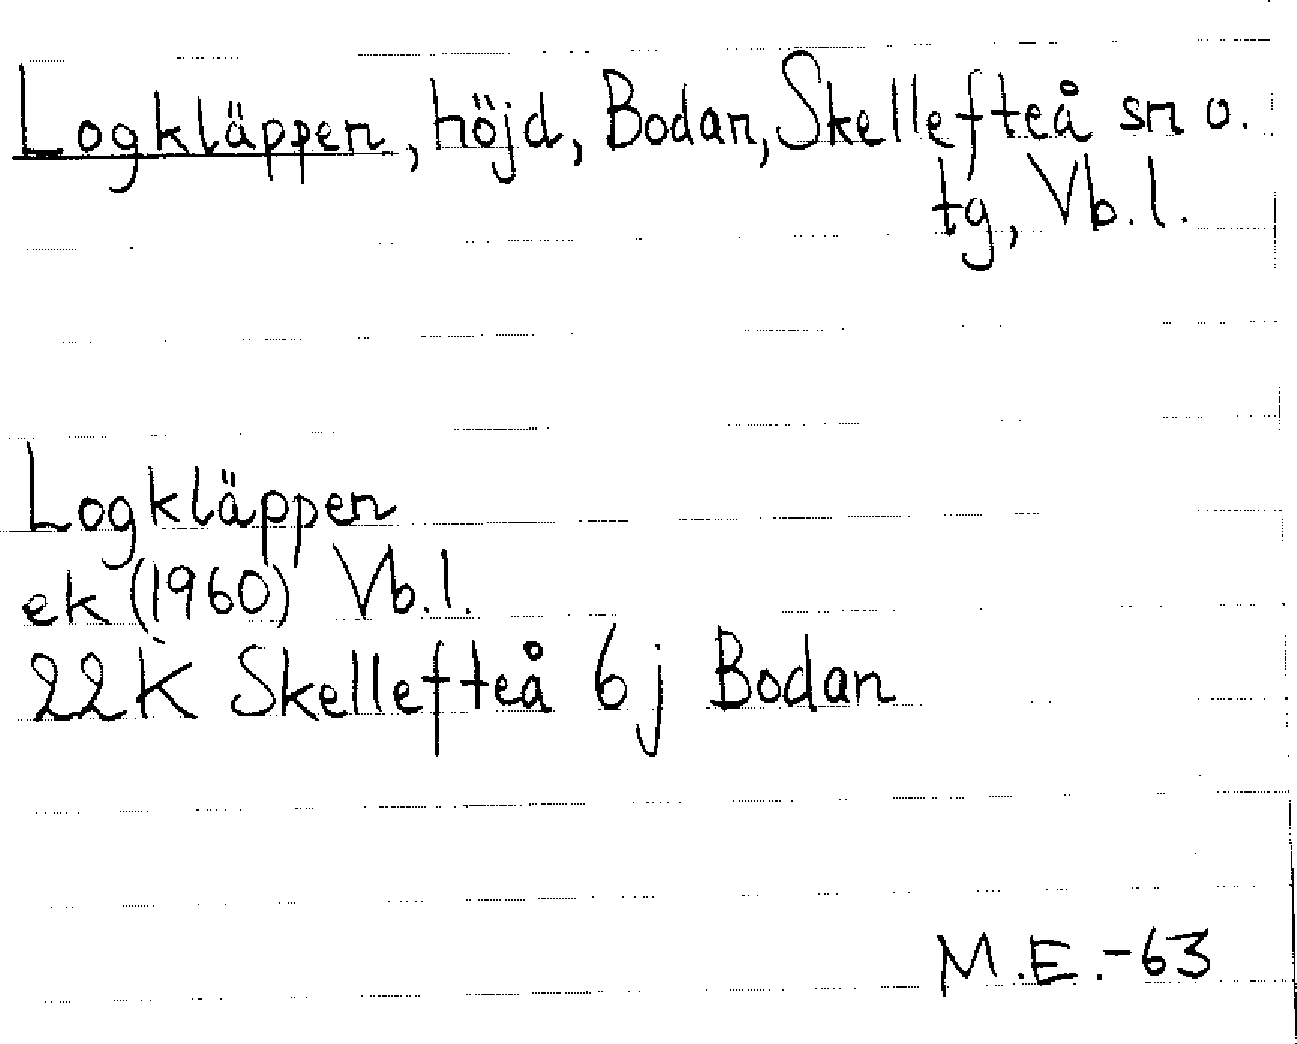 Logkläppen, höjd, Bodan, Skellefteå sn o.
tg, Vb. l.
Logkläppen
ek (1960) Vb. l.
22K Skellefteå 6j Bodan
M.E.-63